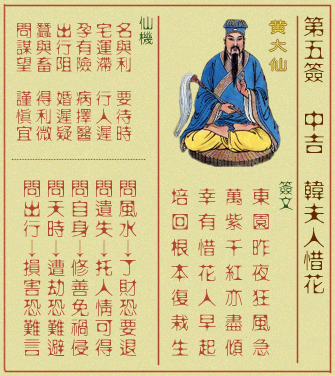 第五簽 中吉 韓夫人惜花
黄大仙
簽文
東園昨夜狂風急
萬紫千紅亦盡傾
幸有惜花人早起
培回根本復栽生
仙機
名與利 要待時
宅運滯 行人遲
孕有險 病擇醫
出行阻 婚遲疑
蠶與畜 得利微
問謀望 謹慎宜
問風水→了財恐要退
問遺失→托人情可得
問自身→修善免禍侵
問天時→遭劫恐難避
問出行→損害恐難言